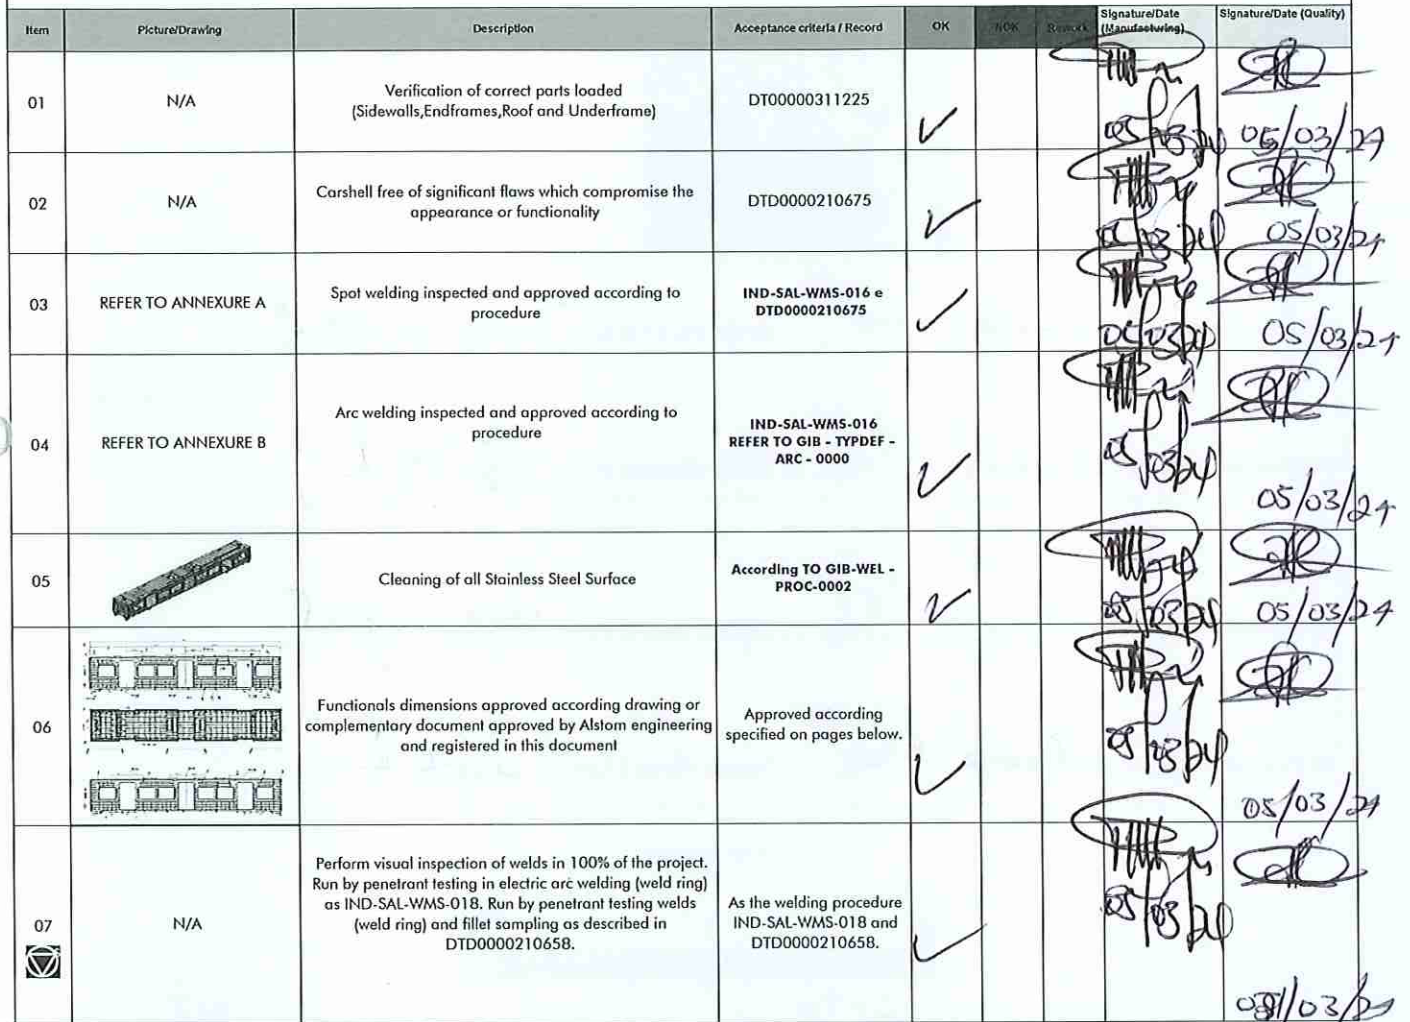 Item
Picture/Drawing
Description
Acceptance criteria / Record
OK
NOK
Rework
Signature/Date
(Manufacturing)
Signature/Date (Quality)
01
N/A
Verification of correct parts loaded
(Sidewalls,Endframes,Roof and Underframe)
DT00000311225
05/03/24
05/03/24
02
N/A
Carshell free of significant flaws which compromise the
appearance or functionality
DTD0000210675
05/03/24
03
REFER TO ANNEXURE A
Spot welding inspected and approved according to
procedure
IND-SAL-WMS-016 e
DTD0000210675
05/03/24
04
REFER TO ANNEXURE B
Arc welding inspected and approved according to
procedure
IND-SAL-WMS-016
REFER TO GIB - TYPDEF -
ARC - 0000
05/03/24
05/03/24
05
Cleaning of all Stainless Steel Surface
According TO GIB-WEL -
PROC-0002
05/03/24
05/03/24
06
Functionals dimensions approved according drawing or
complementary document approved by Alstom engineering
and registered in this document
Approved according
specified on pages below.
05/03/24
05/03/24
07
N/A
Perform visual inspection of welds in 100% of the project.
Run by penetrant testing in electric arc welding (weld ring)
as IND-SAL-WMS-018. Run by penetrant testing welds
(weld ring) and fillet sampling as described in
DTD0000210658.
As the welding procedure
IND-SAL-WMS-018 and
DTD0000210658.
05/03/24